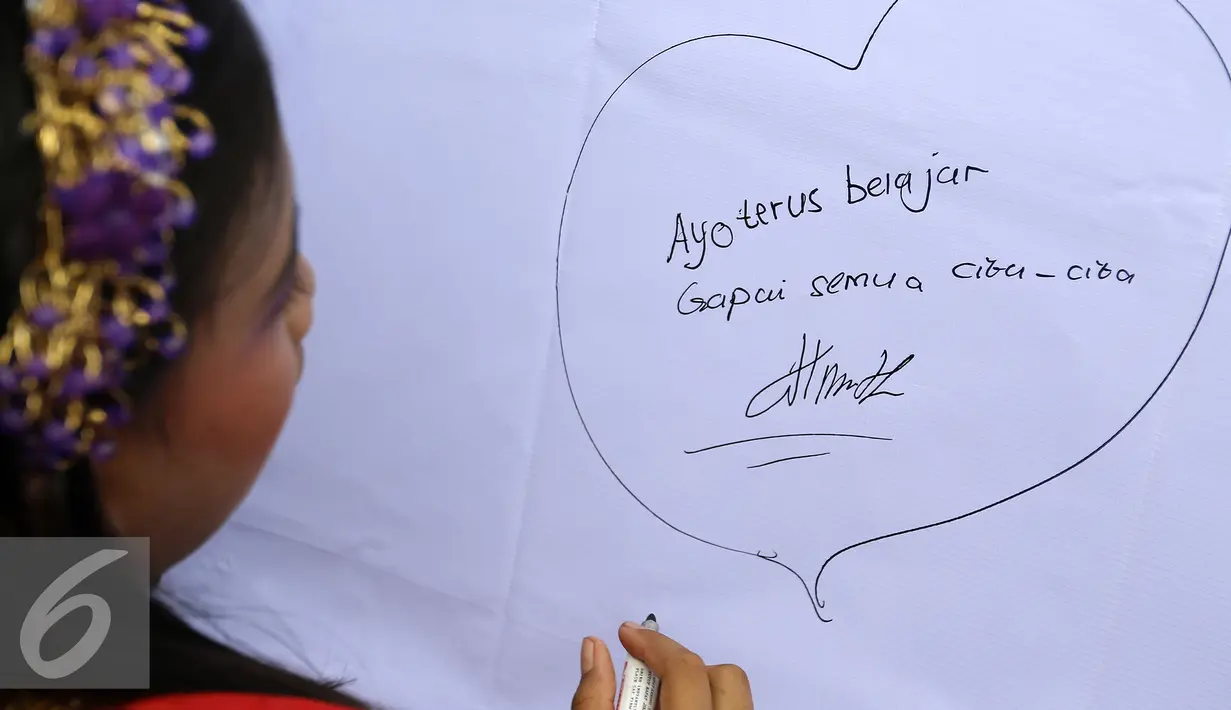 Ayo terus belajar
Gapai semua cita-cita
6